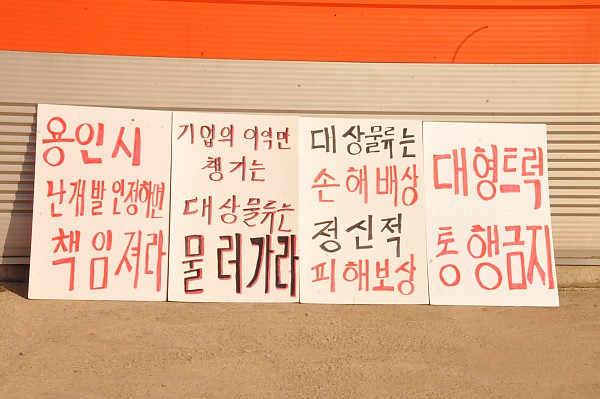 용인시
난개발 인정하면
책임져라
기업의 이익만
챙기는
대상물류는
물러가라
대상물류는
손해배상
정신적
피해보상
대형트럭
통행금지